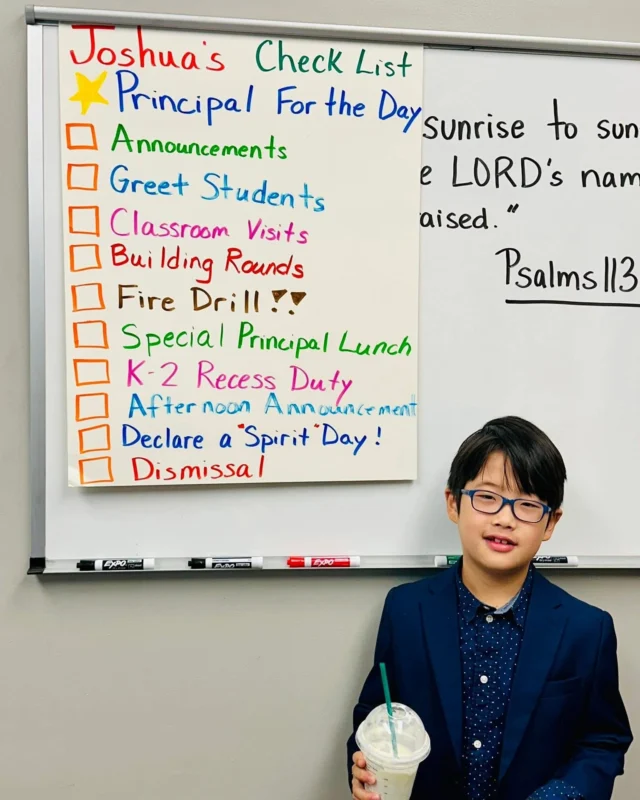 Joshua's Check List
Principal For the Day
Announcements
Greet Students
Classroom Visits
Building Rounds
Fire Drill!!
Special Principal Lunch
K-2 Recess Duty
Afternoon Announcement
Declare a "Spirit" Day!
Dismissal
sunrise to sun
e LORD's nam
aised."
Psalms 113
EXPO
EXPO
EXPO